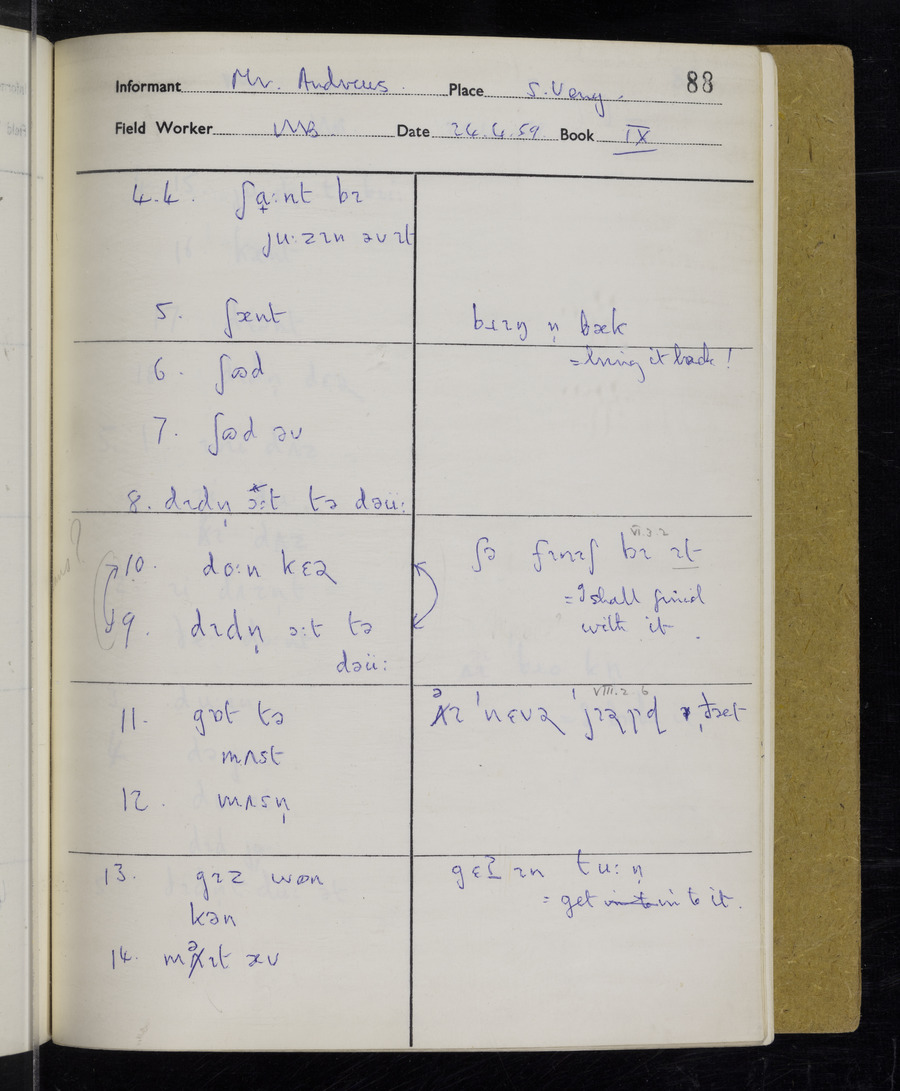 Informant Mr. Andrews Place S. Veny. 88
Field Worker Date 24.4.59 Book IX
4.4. ʃɑ̟:nt bɪ
ju:zɪn əv ɪt
5. ʃænt
bɹɪŋ n̩ bæk
= bring it back!
6. ʃəd
7. ʃəd əv
8. dɪdn̩ ɔ:t tə dəü:
10. do:n kɛɚ
ʃə fɪnɪʃ bɪ ɪt
VI.3.2
= I shall finish
with it.
9. dɪdn̩ ɔ:t tə
dəü:
11. gɒt tə
mʌst
VIII.2.6
12. mʌsn̩
13. gɪz wən
kən
gɛʔ ɪn tu: n̩
= get in to it.
14. məɪt əv